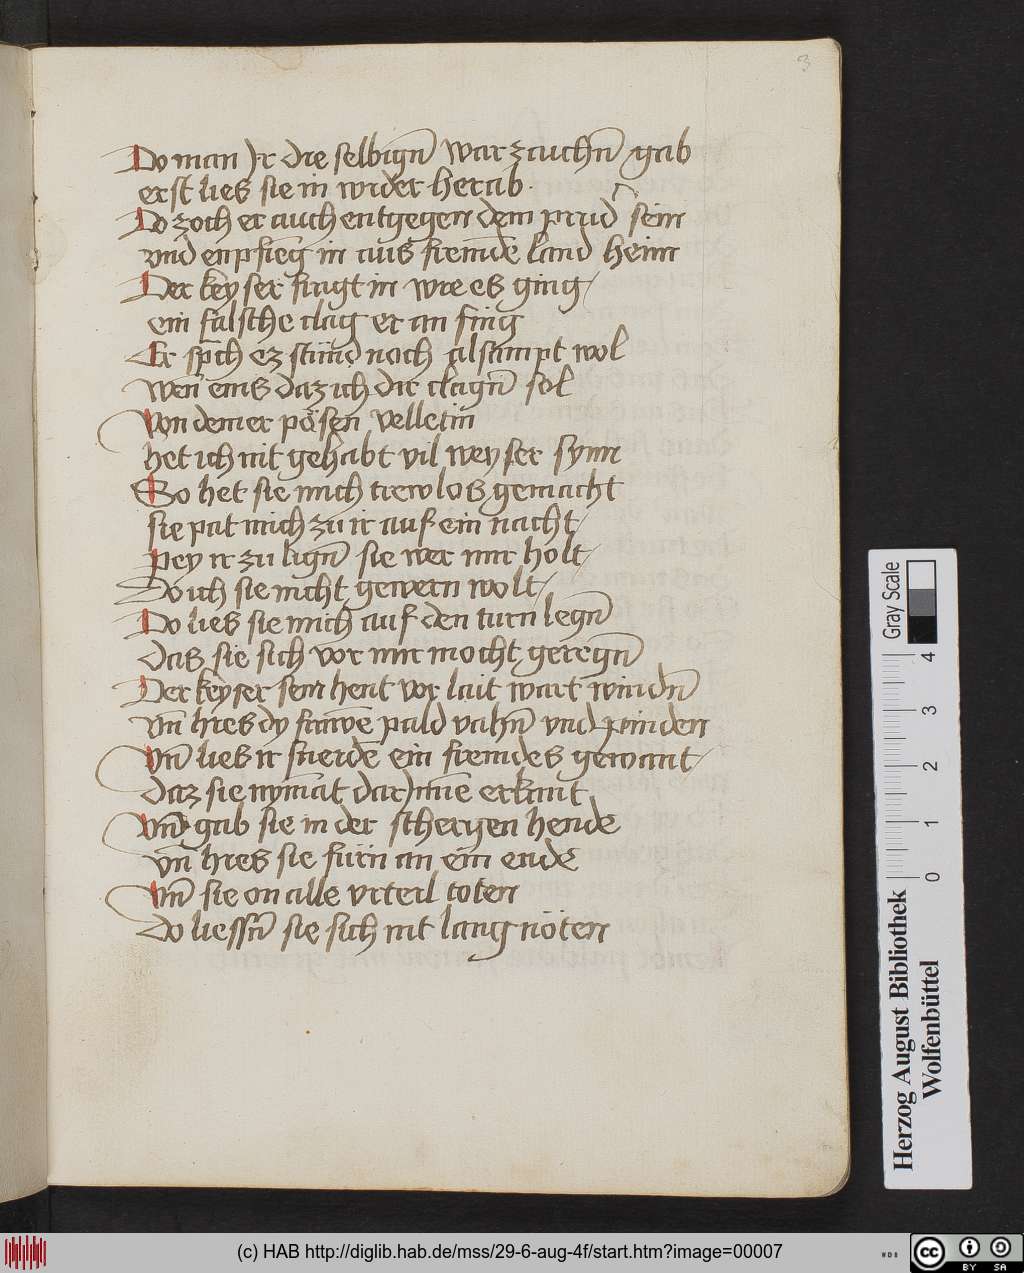 3
Do man Jr die selbign̄ warzaichn̄ gab
erst lies sie in wider herab
Do zoch er auch entgegen dem prud̾ sein
vnd enpfieng in aus fremde land heim
Der keyser fragt in wie es ging
ein falsche clag er an fing
Er sp̄ch ez stünd noch alsampt wol
wen̄ eins daz ich dir clagn̄ sol
Von dem er pösen velletin
het ich nit gehabt vil weyser synn
So het sie mich trewlos gemacht
sie pat mich zu ir auf ein nacht
pey ir zu lign̄ sie wer mir holt
Do ich sie nicht gewern wolt
Do lies sie mich auf den turn legn̄
Das sie sich vor mir mocht geregn̄
Der keyser sein hent vor lait wart windn̄
vn̄ hies dy frawē pald vahn̄ vnd pinden
Vn̄ lies ir fuerdē ein fremdes gewant
daz sie nymāt dar Jnnē erkant
Vn̄ gab sie in der schergen hende
vn̄ hies sie fürn an ein ende
Vn̄ sie on alle vrteil toten
Do liessn̄ sie sich nit lang nöten
Gray Scale
4
3
2
1
0
Herzog August Bibliothek
Wolfenbüttel
(c) HAB http://diglib.hab.de/mss/29-6-aug-4f/start.htm?image=00007
WDB
cc
BY SA